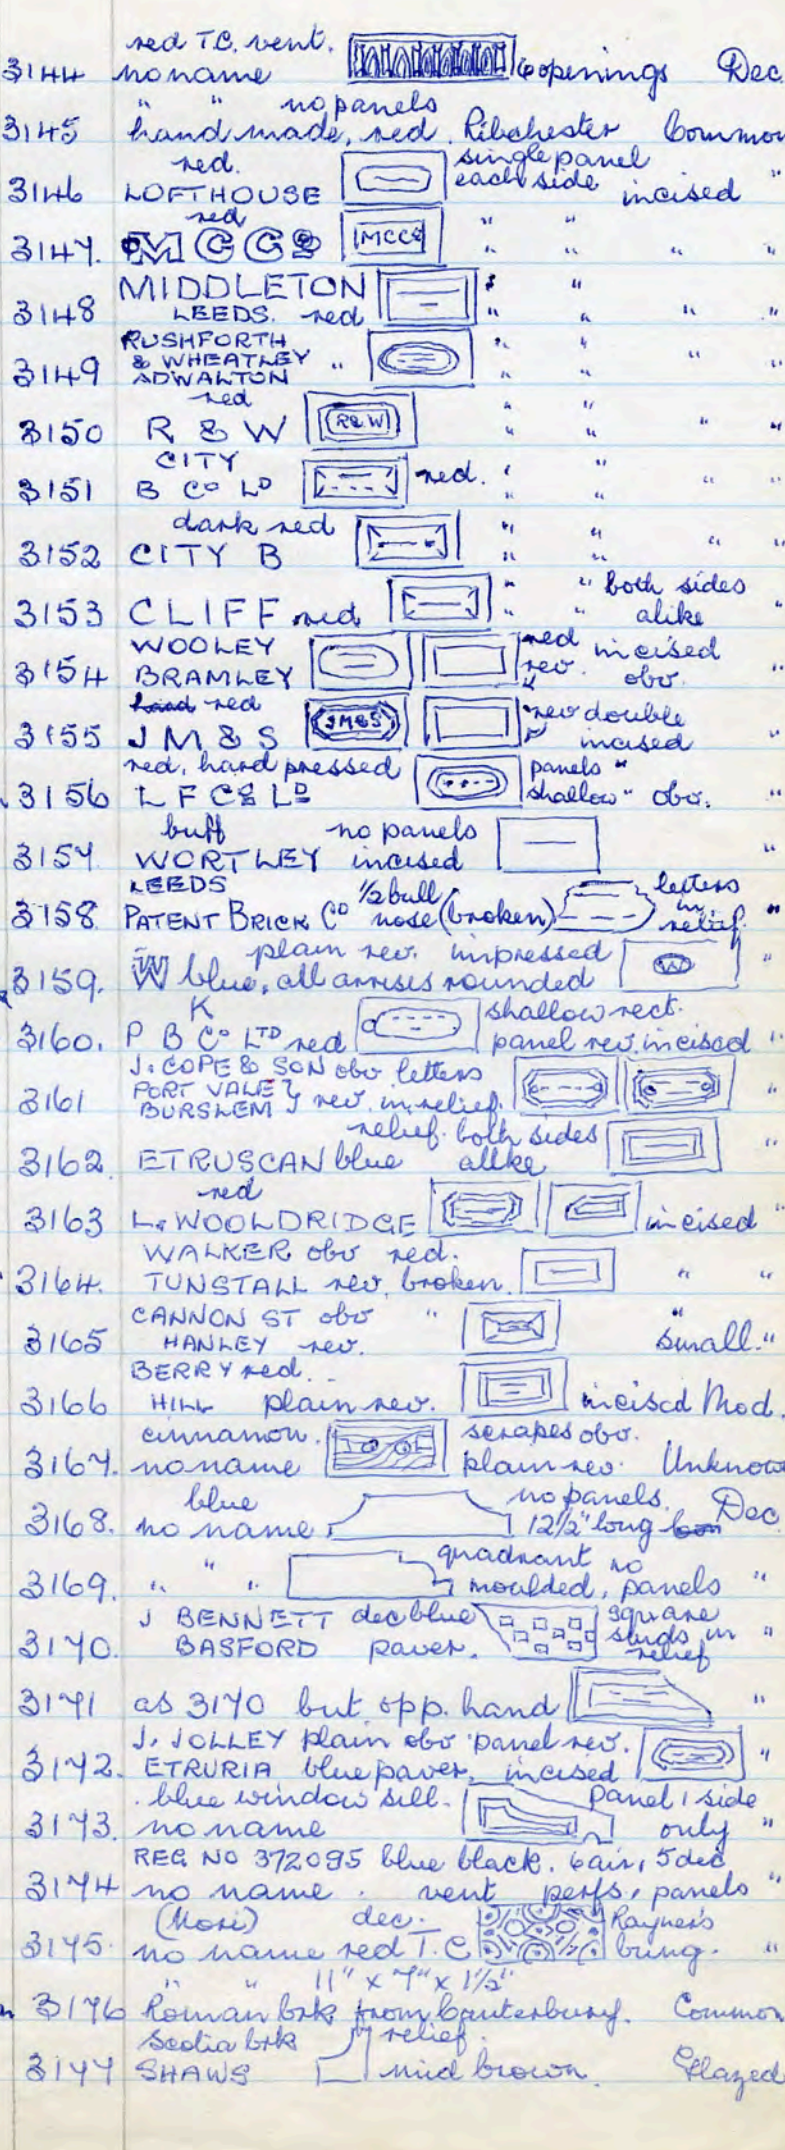 red T.C. vent.
3144 no name 6 openings Dec
" " no panels
3145 hand made, red. Ribchester Common
red. single panel
3146 LOFTHOUSE each side incised "
red " "
3147. MCCo MCCo " " " "
MIDDLETON " "
3148 LEEDS. red " " " "
RUSHFORTH " "
& WHEATLEY " " "
3149 ADWALTON " " "
red " "
3150 R & W R&W " " " "
CITY " "
3151 B Co LD red. " " " "
dark red " " " "
3152 CITY B " "
" " both sides
3153 CLIFF red " " alike "
WOOLEY red incised
3154 BRAMLEY rev. " obv. "
hand red rev double
3155 J M & S JM&S " incised "
red, hand pressed panels "
3156 L F Co LD shallow " obv. "
buff no panels
3157 WORTLEY incised "
LEEDS 1/2 bull letters
3158 PATENT BRICK Co nose (broken) in relief. "
plain rev. impressed
3159. W blue, all arrises rounded W "
K shallow rect.
3160. P B Co LTD red panel rev. incised "
J. COPE & SON obv letters
PORT VALE }
3161 BURSLEM } rev. in relief. "
relief. both sides
3162 ETRUSCAN blue alike "
red
3163 L. WOOLDRIDGE incised "
WALKER obv red.
3164. TUNSTALL rev. broken. " "
CANNON ST obv " "
3165 HANLEY rev. Small. "
BERRY red.
3166 HILL plain rev. incised Mod.
cinnamon. scrapes obv.
3167. no name plain rev. Unknown
blue no panels. Dec
3168. no name 12½" long
" " quadrant no
3169. " " moulded, panels "
J BENNETT dec blue square
3170. BASFORD paver. studs in relief "
3171 as 3170 but opp. hand "
J. JOLLEY plain obv panel rev.
3172. ETRURIA blue paver, incised "
blue window sill. Panel 1 side
3173. no name only "
REG NO 372095 blue black. 6 air, 5 dec
3174 no name. vent perfs, panels "
dec. Rayner's
3175. no name red T.C bung. "
" " 11" x 7" x 1½"
3176 Roman brk from Canterbury. Common
Scotia brk relief.
3177 SHAWS mid brown. Glazed